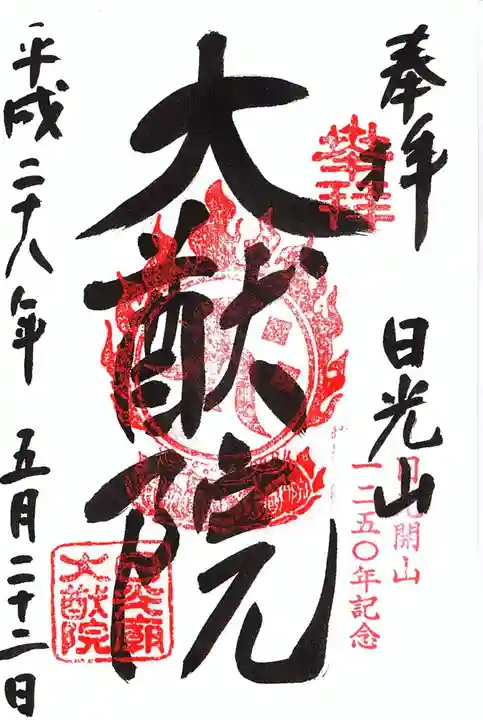 奉拝 日光山
奉拝
日光開山
一二五〇年記念
大猷院
大猷院
平成二十八年 五月二十二日